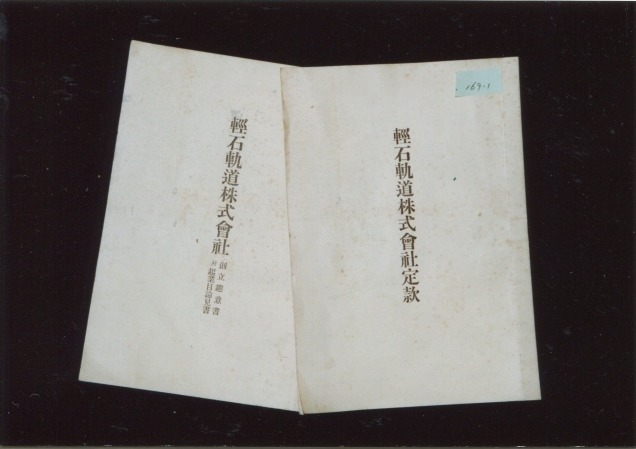 輕石軌道株式會社定款
169.1
輕石軌道株式會社
創立趣意書
起業目論見書